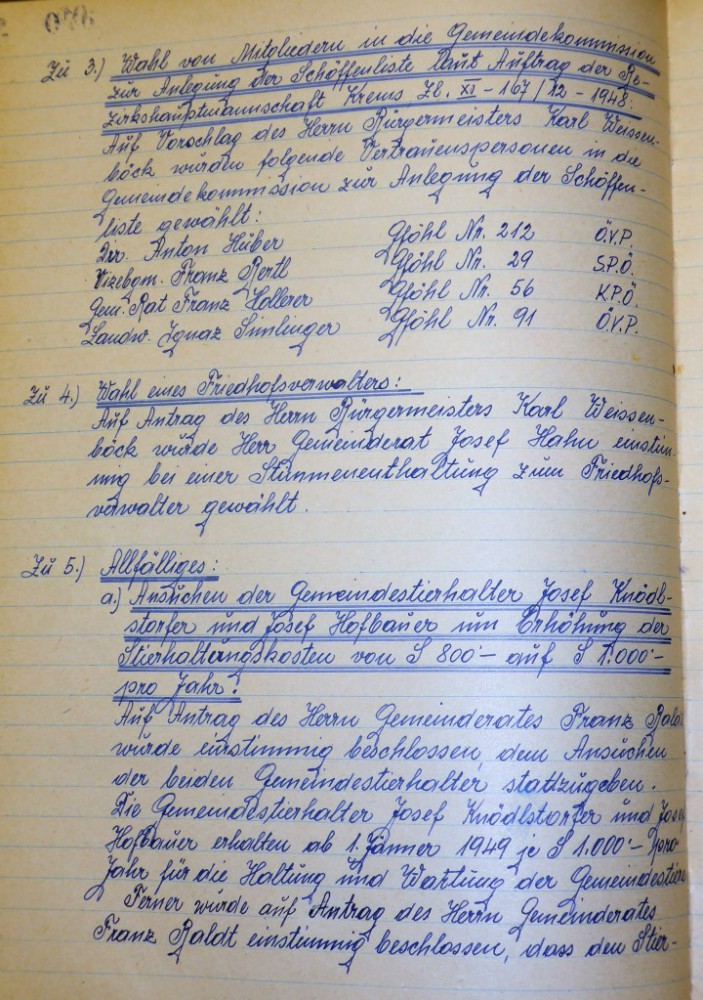 Zu 3.) Wahl von Mitgliedern in die Gemeindekommission
zur Anlegung der Schöffenliste laut Auftrag der Be-
zirkshauptmannschaft Krems, Zl. XI - 167/12 - 1948:
Auf Vorschlag des Herrn Bürgermeisters Karl Weissen-
böck wurden folgende Vertrauenspersonen in die
Gemeindekommission zur Anlegung der Schöffen-
liste gewählt:
Dir. Anton Huber Gföhl Nr. 212 Ö.V.P.
Vizebgm. Franz Gföhl Nr. 29 S.P.Ö.
Gem. Rat Franz Hollerer Gföhl Nr. 56 K.P.Ö.
Landw. Ignaz Simlinger Gföhl Nr. 91 Ö.V.P.
Zu 4.) Wahl eines Friedhofsverwalters:
Auf Antrag des Herrn Bürgermeisters Karl Weissen-
böck wurde Herr Gemeinderat Josef Hahn einstim-
mig bei einer Stimmenenthaltung zum Friedhofs-
verwalter gewählt.
Zu 5.) Allfälliges:
a.) Ansuchen der Gemeindestierhalter Josef Knödl-
storfer und Josef Hofbauer um Erhöhung der
Stierhaltungskosten von S 800·- auf S 1.000·-
pro Jahr:
Auf Antrag des Herrn Gemeinderates Franz Raldt
wurde einstimmig beschlossen, dem Ansuchen
der beiden Gemeindestierhalter stattzugeben.
Die Gemeindestierhalter Josef Knödlstorfer und Josef
Hofbauer erhalten ab 1. Jänner 1949 je S 1.000·- pro
Jahr für die Haltung und Wartung der Gemeindestiere
Ferner wurde auf Antrag des Herrn Gemeinderates
Franz Raldt einstimmig beschlossen, dass den Stier-